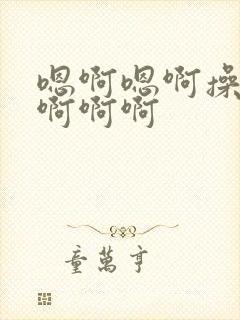 嗯啊嗯啊操
啊啊啊
童萬亨